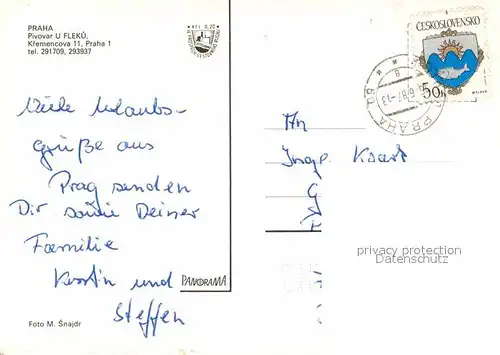 PRAHA
Pivovar U FLEKŮ,
Křemencova 11, Praha 1
tel. 291709, 293937
Kčs 0,20
ČESKOSLOVENSKO
50h
PRAHA
Viele Urlaubs-
grüße aus
Prag senden
Dir sowie Deiner
Familie
Kerstin und
Steffen
An
Inge
G
privacy protection
Datenschutz
PANORAMA
Foto M. Šnajdr